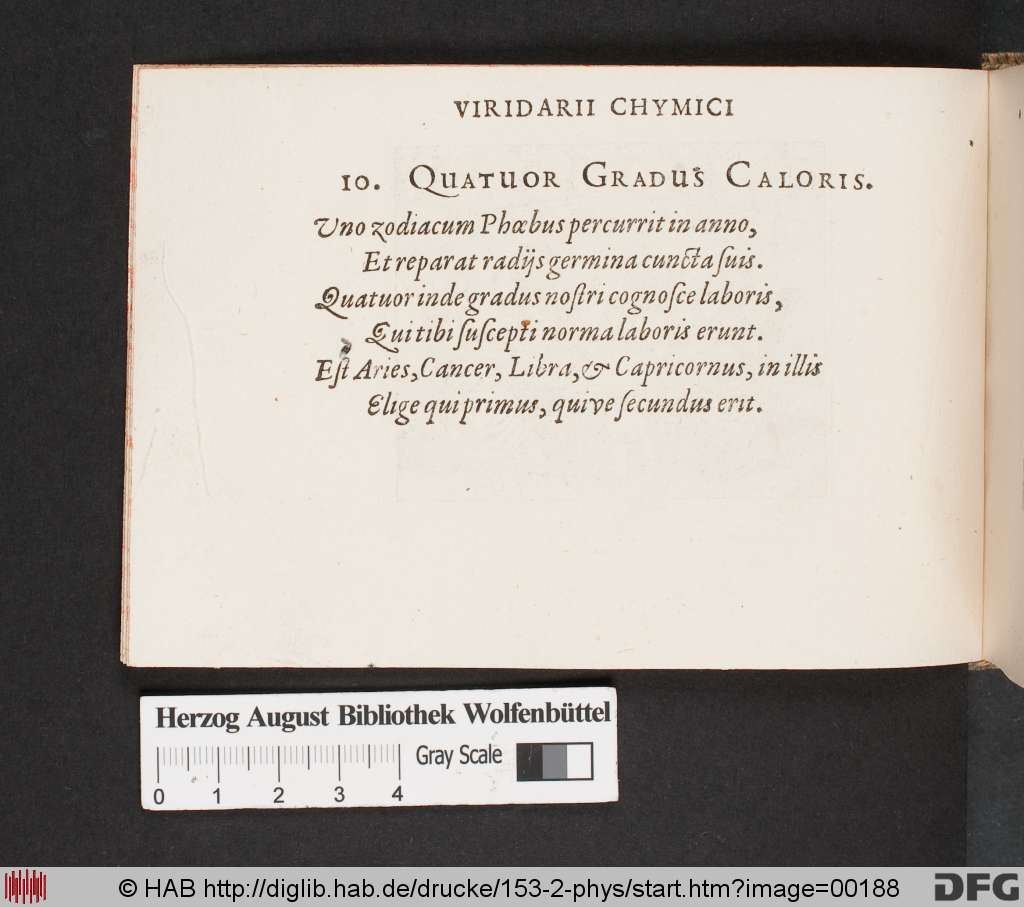 VIRIDARII CHYMICI
10. QUATUOR GRADUS CALORIS.
Uno zodiacum Phœbus percurrit in anno,
Et reparat radijs germina cuncta ſuis.
Quatuor inde gradus noſtri cognoſce laboris,
Qui tibi ſuſcepti norma laboris erunt.
Eſt Aries, Cancer, Libra, & Capricornus, in illis
Elige qui primus, quive ſecundus erit.
Herzog August Bibliothek Wolfenbüttel
Gray Scale
0 1 2 3 4
© HAB http://diglib.hab.de/drucke/153-2-phys/start.htm?image=00188
DFG